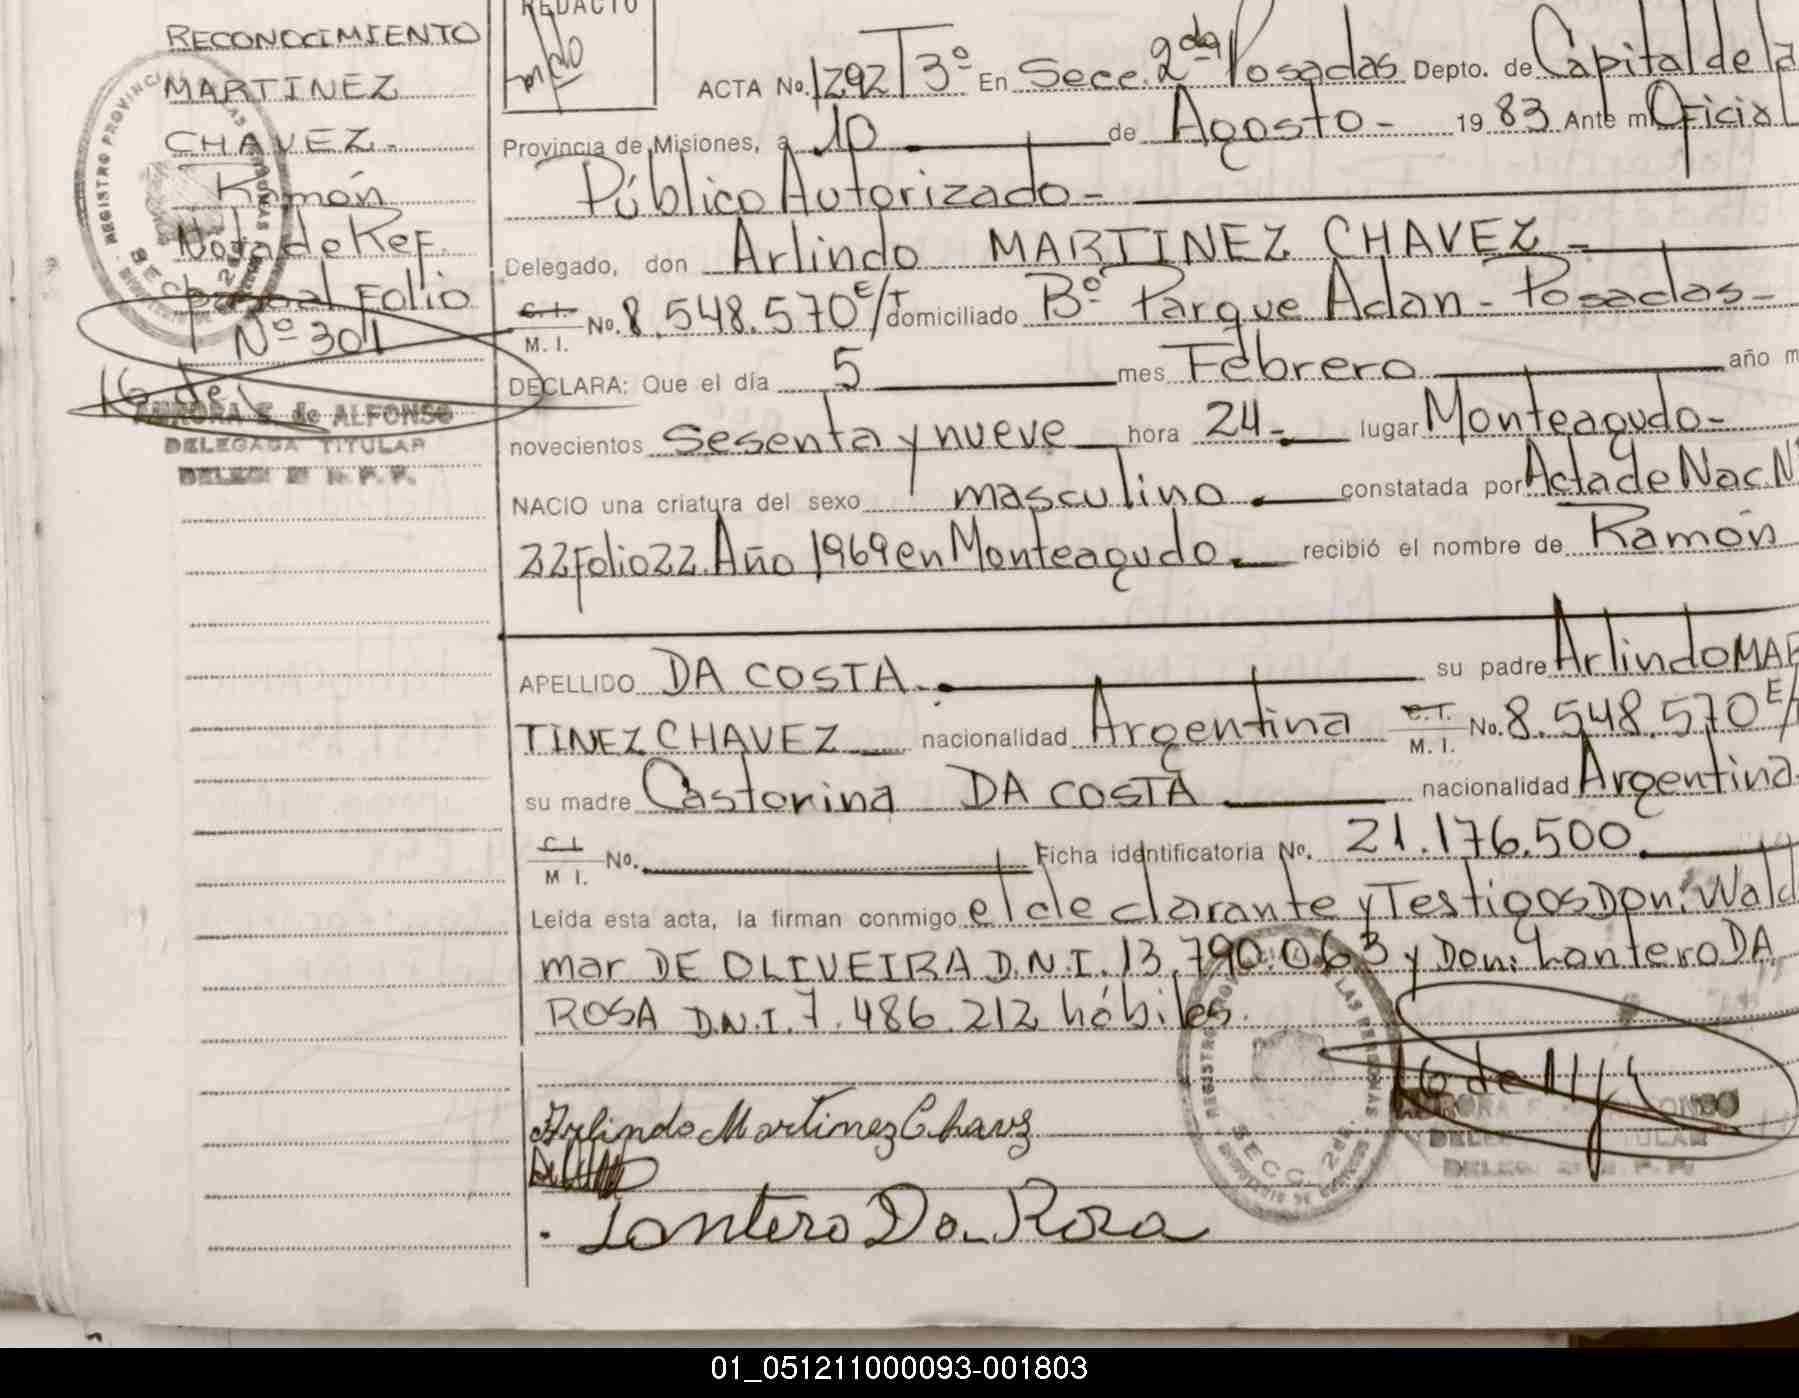 RECONOCIMIENTO
MARTINEZ
CHAVEZ.-
Ramón
Nota de Ref.
Folio
Nº 301
AURORA E. de ALFONSO
DELEGADA TITULAR
REDACTO
ACTA No. 1292 T3º En Secc. 2da Posadas Depto. de Capital de la
Provincia de Misiones, a 10 de Agosto - 1983 Ante mí Oficial
Público Autorizado -
Delegado, don Arlindo MARTINEZ CHAVEZ -
C.I. M.I. No. 8.548.570 E/T domiciliado Bº Parque Adan - Posadas -
DECLARA: Que el día 5 mes Febrero año m
novecientos sesenta y nueve hora 24 - lugar Monteagudo -
NACIO una criatura del sexo masculino . constatada por Acta de Nac. Nº
22 Folio 22. Año 1969 en Monteagudo. recibió el nombre de Ramón
APELLIDO DA COSTA . su padre Arlindo MAR
TINEZ CHAVEZ nacionalidad Argentina C.I. M.I. No. 8.548.570 E/
su madre Castorina DA COSTA nacionalidad Argentina
C I M I. No. Ficha identificatoria No. 21.176.500.
Leída esta acta, la firman conmigo el declarante y Testigos Don: Wald
mar DE OLIVEIRA D.N.I. 13.790.063 y Don: Lantero DA
ROSA D.N.I. 7.486.212 hábiles.
Arlindo Martinez Chavez
Lantero Da Rosa
REGISTRO PROVINCIAL DE LAS PERSONAS
SECC. 2da.
DELEGADA TITULAR
01_051211000093-001803